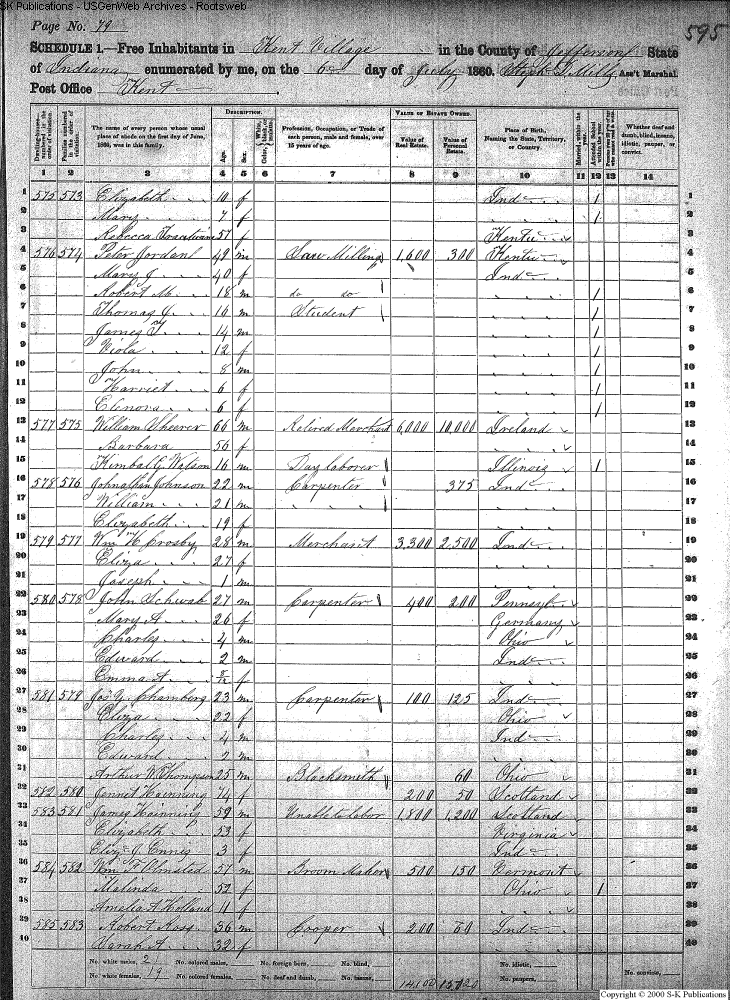 SK Publications - USGenWeb Archives - Rootsweb
Page No. 79
595
SCHEDULE 1.—Free Inhabitants in Kent Village in the County of Jefferson State
of Indiana enumerated by me, on the 6 day of July 1860. Steph. Mills Ass't Marshal.
Post Office Kent
DESCRIPTION. VALUE OF ESTATE OWNED.
Dwelling-houses— numbered in the order of visitation.
Families numbered in the order of visitation.
The name of every person whose usual place of abode on the first day of June, 1860, was in this family.
Age. Sex. Color,
Profession, Occupation, or Trade of each person, male and female, over 15 years of age.
Value of Real Estate.
Value of Personal Estate.
Place of Birth, Naming the State, Territory, or Country.
Married within the year.
Attended School within the year.
Whether deaf and dumb, blind, insane, idiotic, pauper, or convict.
1 2 3 4 5 6 7 8 9 10 11 12 13 14
1 575 573 Elizabeth 10 f Ind 1 1
2 Mary 7 f 1 2
3 Rebecca 57 f Kentu 3
4 576 574 Peter Jordan 49 m Saw Milling 1,600 300 Kentu 4
5 Mary J 40 f Ind 5
6 Robert M. 18 m do do 1 6
7 Thomas J. 16 m Student 1 7
8 James T. 14 m 1 8
9 Viola 12 f 1 9
10 John 8 m 1 10
11 Harriet 6 f 1 11
12 Elenora 6 f 1 12
13 577 575 William Sheerer 66 m Retired Merchant 6,000 10,000 Ireland 13
14 Barbara 56 f " 14
15 Kimball G Watson 16 m Day laborer Illinois 1 15
16 578 576 Johnathan Johnson 22 m Carpenter 375 Ind 16
17 William 21 m " " 17
18 Elizabeth 19 f 18
19 579 577 Wm H Crosby 28 m Merchant 3,300 2,500 Ind 19
20 Eliza 27 f 20
21 Joseph 1 m 21
22 580 578 John Schwab 27 m Carpenter 400 200 Pennsyl 22
23 Mary A 26 f Germany 23
24 Charles 4 m Ohio 24
25 Edward 2 m Ind 25
26 Emma A 2/12 f 26
27 581 579 Jas Y. Chambers 23 m Carpenter 100 125 Ind 27
28 Eliza 22 f Ohio 28
29 Charles 4 m Ind 29
30 Edward 2 m 30
31 Arthur W Thompson 25 m Blacksmith 60 Ohio 31
32 582 580 Jennet Hainning 74 f 200 50 Scotland 32
33 583 581 James Hainning 59 m Unable to labor 1,800 1,200 Scotland 33
34 Elizabeth 53 f Virginia 34
35 Eliz J. Ennis 3 f Ind 35
36 584 582 Wm F Olmsted 57 m Broom Maker 500 150 Vermont 36
37 Malinda 52 f Ohio 1 37
38 Amelia A Holland 11 f 38
39 585 583 Robert Ross 36 m Cooper 200 60 Ind 39
40 Sarah A 32 f 40
No. white males, 21 No. colored males, No. foreign born, No. blind, No. idiotic,
No. white females, 19 No. colored females, No. deaf and dumb, No. insane, No. paupers, No. convicts,
Copyright © 2000 S-K Publications